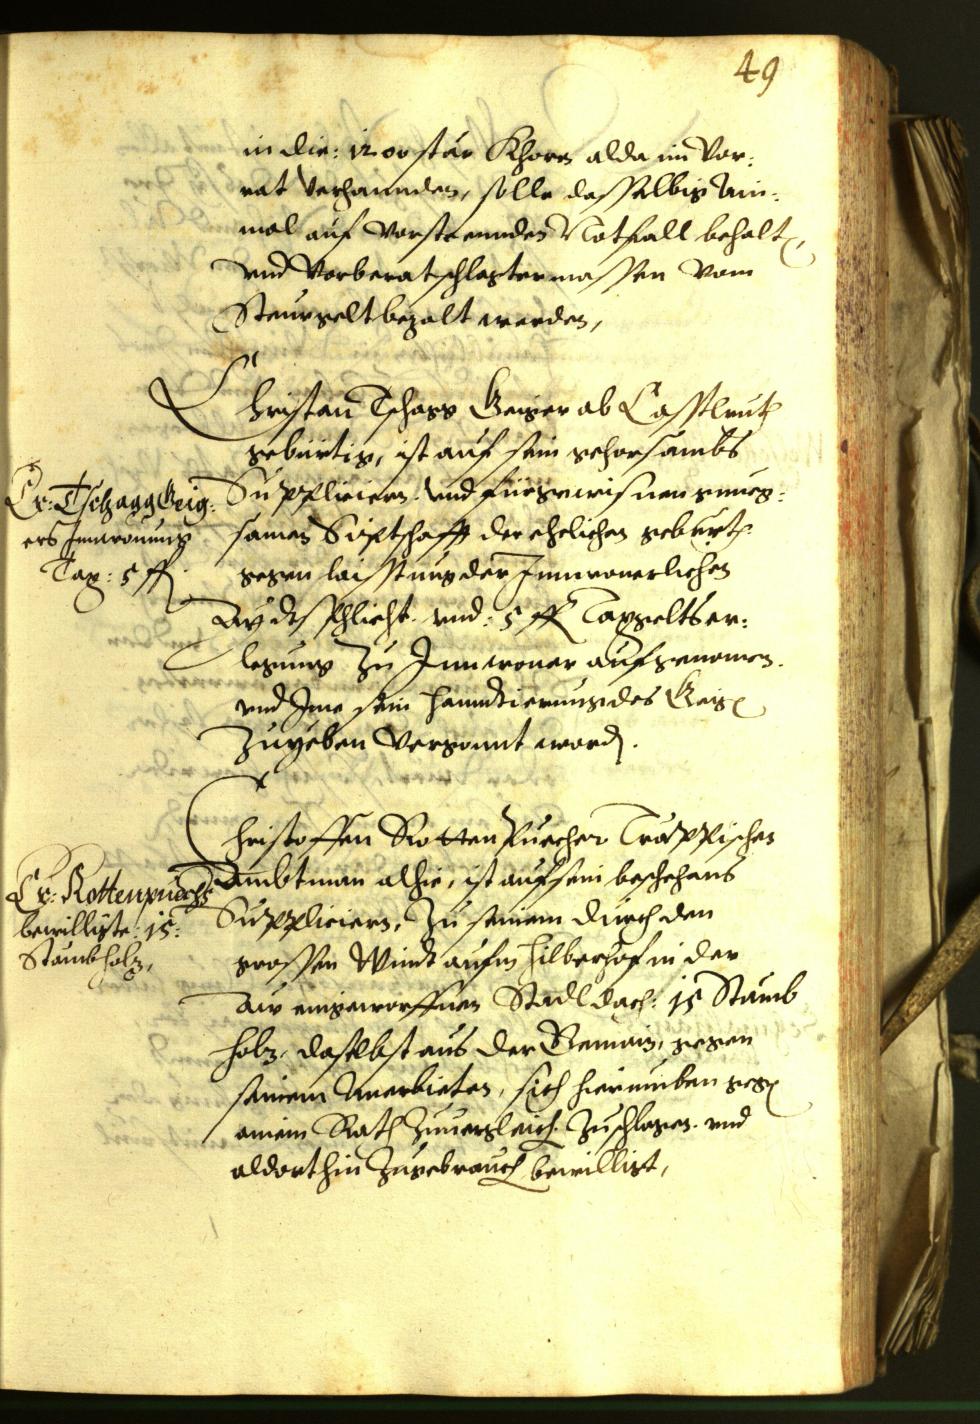 49
in die: 1200 stär Khorn alda im Vor:
rat verhannden, solle dasselbig ain:
mal auf vorsteenden Notfall behalten,
vnd vorberatschlagtermassen vom
Steurgelt bezalt werden,
Christan Tschagg Geiger ab Casstlrut
gebürtig, ist auf sein gehorsambs
Suppliciern vnd fürgewisnen gnueg:
samen Siptschafft der ehelichen geburt
gegen laisstung der Innwonerlichen
Aydtsphlicht vnd: 5 ff Taxgelts er:
legung zu Innwoner aufgenomen.
vnd Ime sein hanndtierung des Geig
zuyeben vergonnt word.
Cr: Tschagg Geig:
ers Innwonung
Tax: 5 ff.
Christoffen Rottenpuecher Trappischen
Ambtman alhie, ist auf sein beschehens
Suppliciern, zu seinem durch den
grossen Windt aufm Hilberhof in der
Aw eingeworffnen Stadl dach: 15 Stamb
holz, daselbst aus der Gemain, gegen
seinem Anerbieten, sich hierumben gegen
ainem Rath zuuergleich, zuschlagen vnd
aldorthin zugebrauch bewilligt,
Cr: Rottenpuechs
bewilligte: 15:
Stambholz,